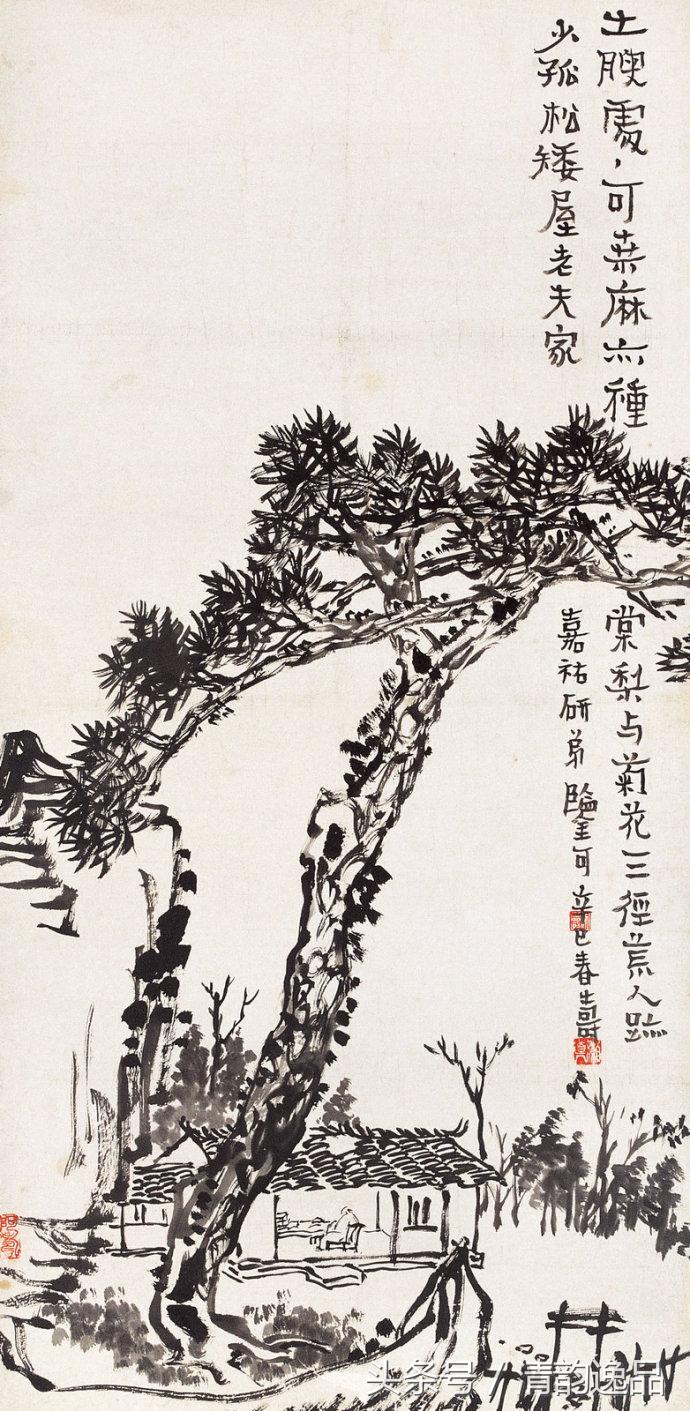 土腴處〻可桑麻亦種
棠梨与菊花三徑荒人跡
少孤松矮屋老夫家
嘉祐研弟 鑒可 辛巳春 壽
头条号 / 青韵逸品